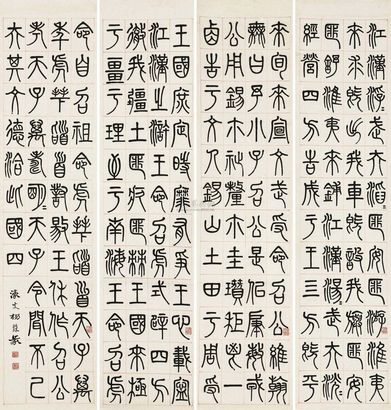 江漢浮〻武夫滔〻匪安匪游淮夷
來求既出我車既設我旟匪安
匪舒淮夷來鋪江漢湯〻武夫洸〻
經營四方告成于王四方既平
來旬來宣文武受命召公維翰
無曰予小子召公是似肇敏戎
公用錫爾祉釐爾圭瓚秬鬯一
卣告于文人錫山土田于周受
王國庶定時靡有爭王心載寧
江漢之滸王命召虎式辟四方
徹我疆土匪疚匪棘王國來極
于疆于理至于南海王命召虎
命自召祖命虎拜稽首天子萬
年虎拜稽首對揚王休作召公
考天子萬壽明〻天子令聞不已
矢其文德洽此四國
濠叟楊沂孫